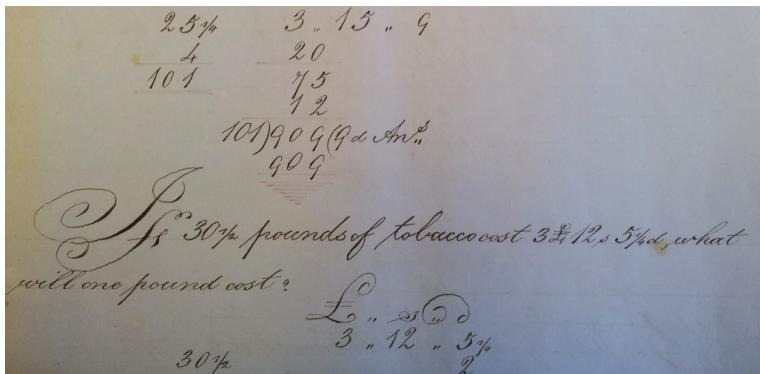 25 1/4 3 „ 15 „ 9
4 20
101 75
12
101)909(9d Ans„
909
If 30 1/2 pounds of tobacco cost 3£ 12„s 5 1/4d, what
will one pound cost?
£ „ s „ d
3 „ 12 „ 5 1/4
30 1/2 2